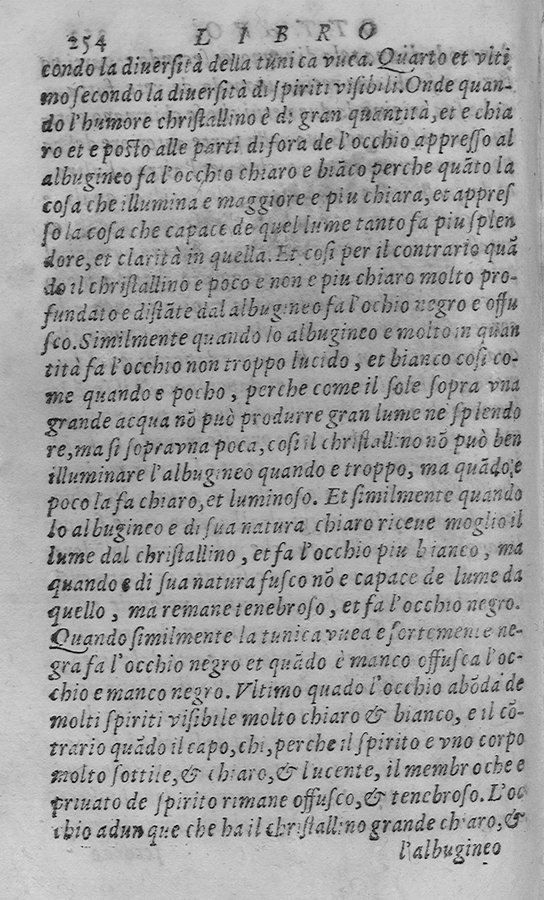 254 LIBRO
condo la diuersità della tunica vuea. Quarto et vlti
mo secondo la diuersità di spiriti visibili. Onde quan-
do l'humore christallino è di gran quantità, et e chia
ro et e posto alle parti di fora de l'occhio appresso al
albugineo fa l'occhio chiaro e biãco perche quãto la
cosa che illumina e maggiore e piu chiara, et appres
so la cosa che capace de quel lume tanto fa piu splen
dore, et clarità in quella. Et cosi per il contrario quã
do il christallino e poco e non e piu chiaro molto pro-
fundato e distãte dal albugineo fa l'ochio negro e offu
sco. Similmente quando lo albugineo e molto in quan
tità fa l'occhio non troppo lucido, et bianco cosi co-
me quando e pocho, perche come il sole sopra vna
grande acqua nõ può produrre gran lume ne splendo
re, ma si sopra vna poca, cosi il christallino nõ può ben
illuminare l'albugineo quando e troppo, ma quãdo e
poco la fa chiaro, et luminoso. Et similmente quando
lo albugineo e di sua natura chiaro riceue moglio il
lume dal christallino, et fa l'occhio piu bianco, ma
quando e di sua natura fusco nõ e capace de lume da
quello, ma remane tenebroso, et fa l'occhio negro.
Quando similmente la tunica vuea e fortemente ne-
gra fa l'occhio negro et quãdo è manco offusca l'oc-
chio e manco negro. Vltimo quado l'occhio abõda de
molti spiriti visibile molto chiaro & bianco, e il cõ-
trario quãdo il capo, chi, perche il spirito e vno corpo
molto sottile, & chiaro, & lucente, il membro che e
priuato de spirito rimane offusco, & tenebroso. L'oc
chio adunque che ha il christallino grande chiaro, &
l'albugineo